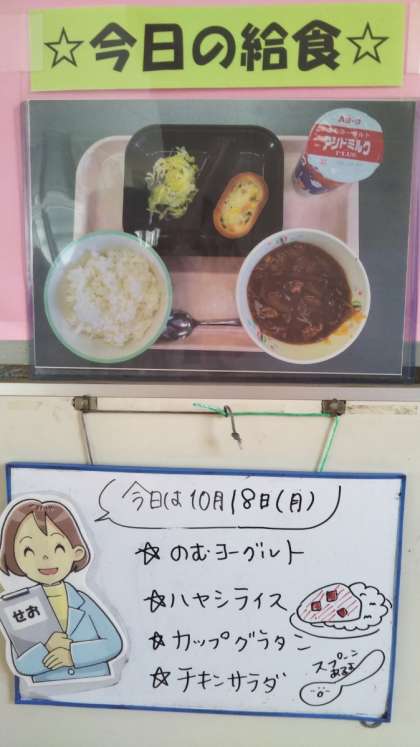 ☆今日の給食☆
アシドミルク
PLUS
今日は10月18日(月)
☆ のむヨーグルト
☆ ハヤシライス
☆ カップグラタン
☆ チキンサラダ
せお
スプーン
あるよ